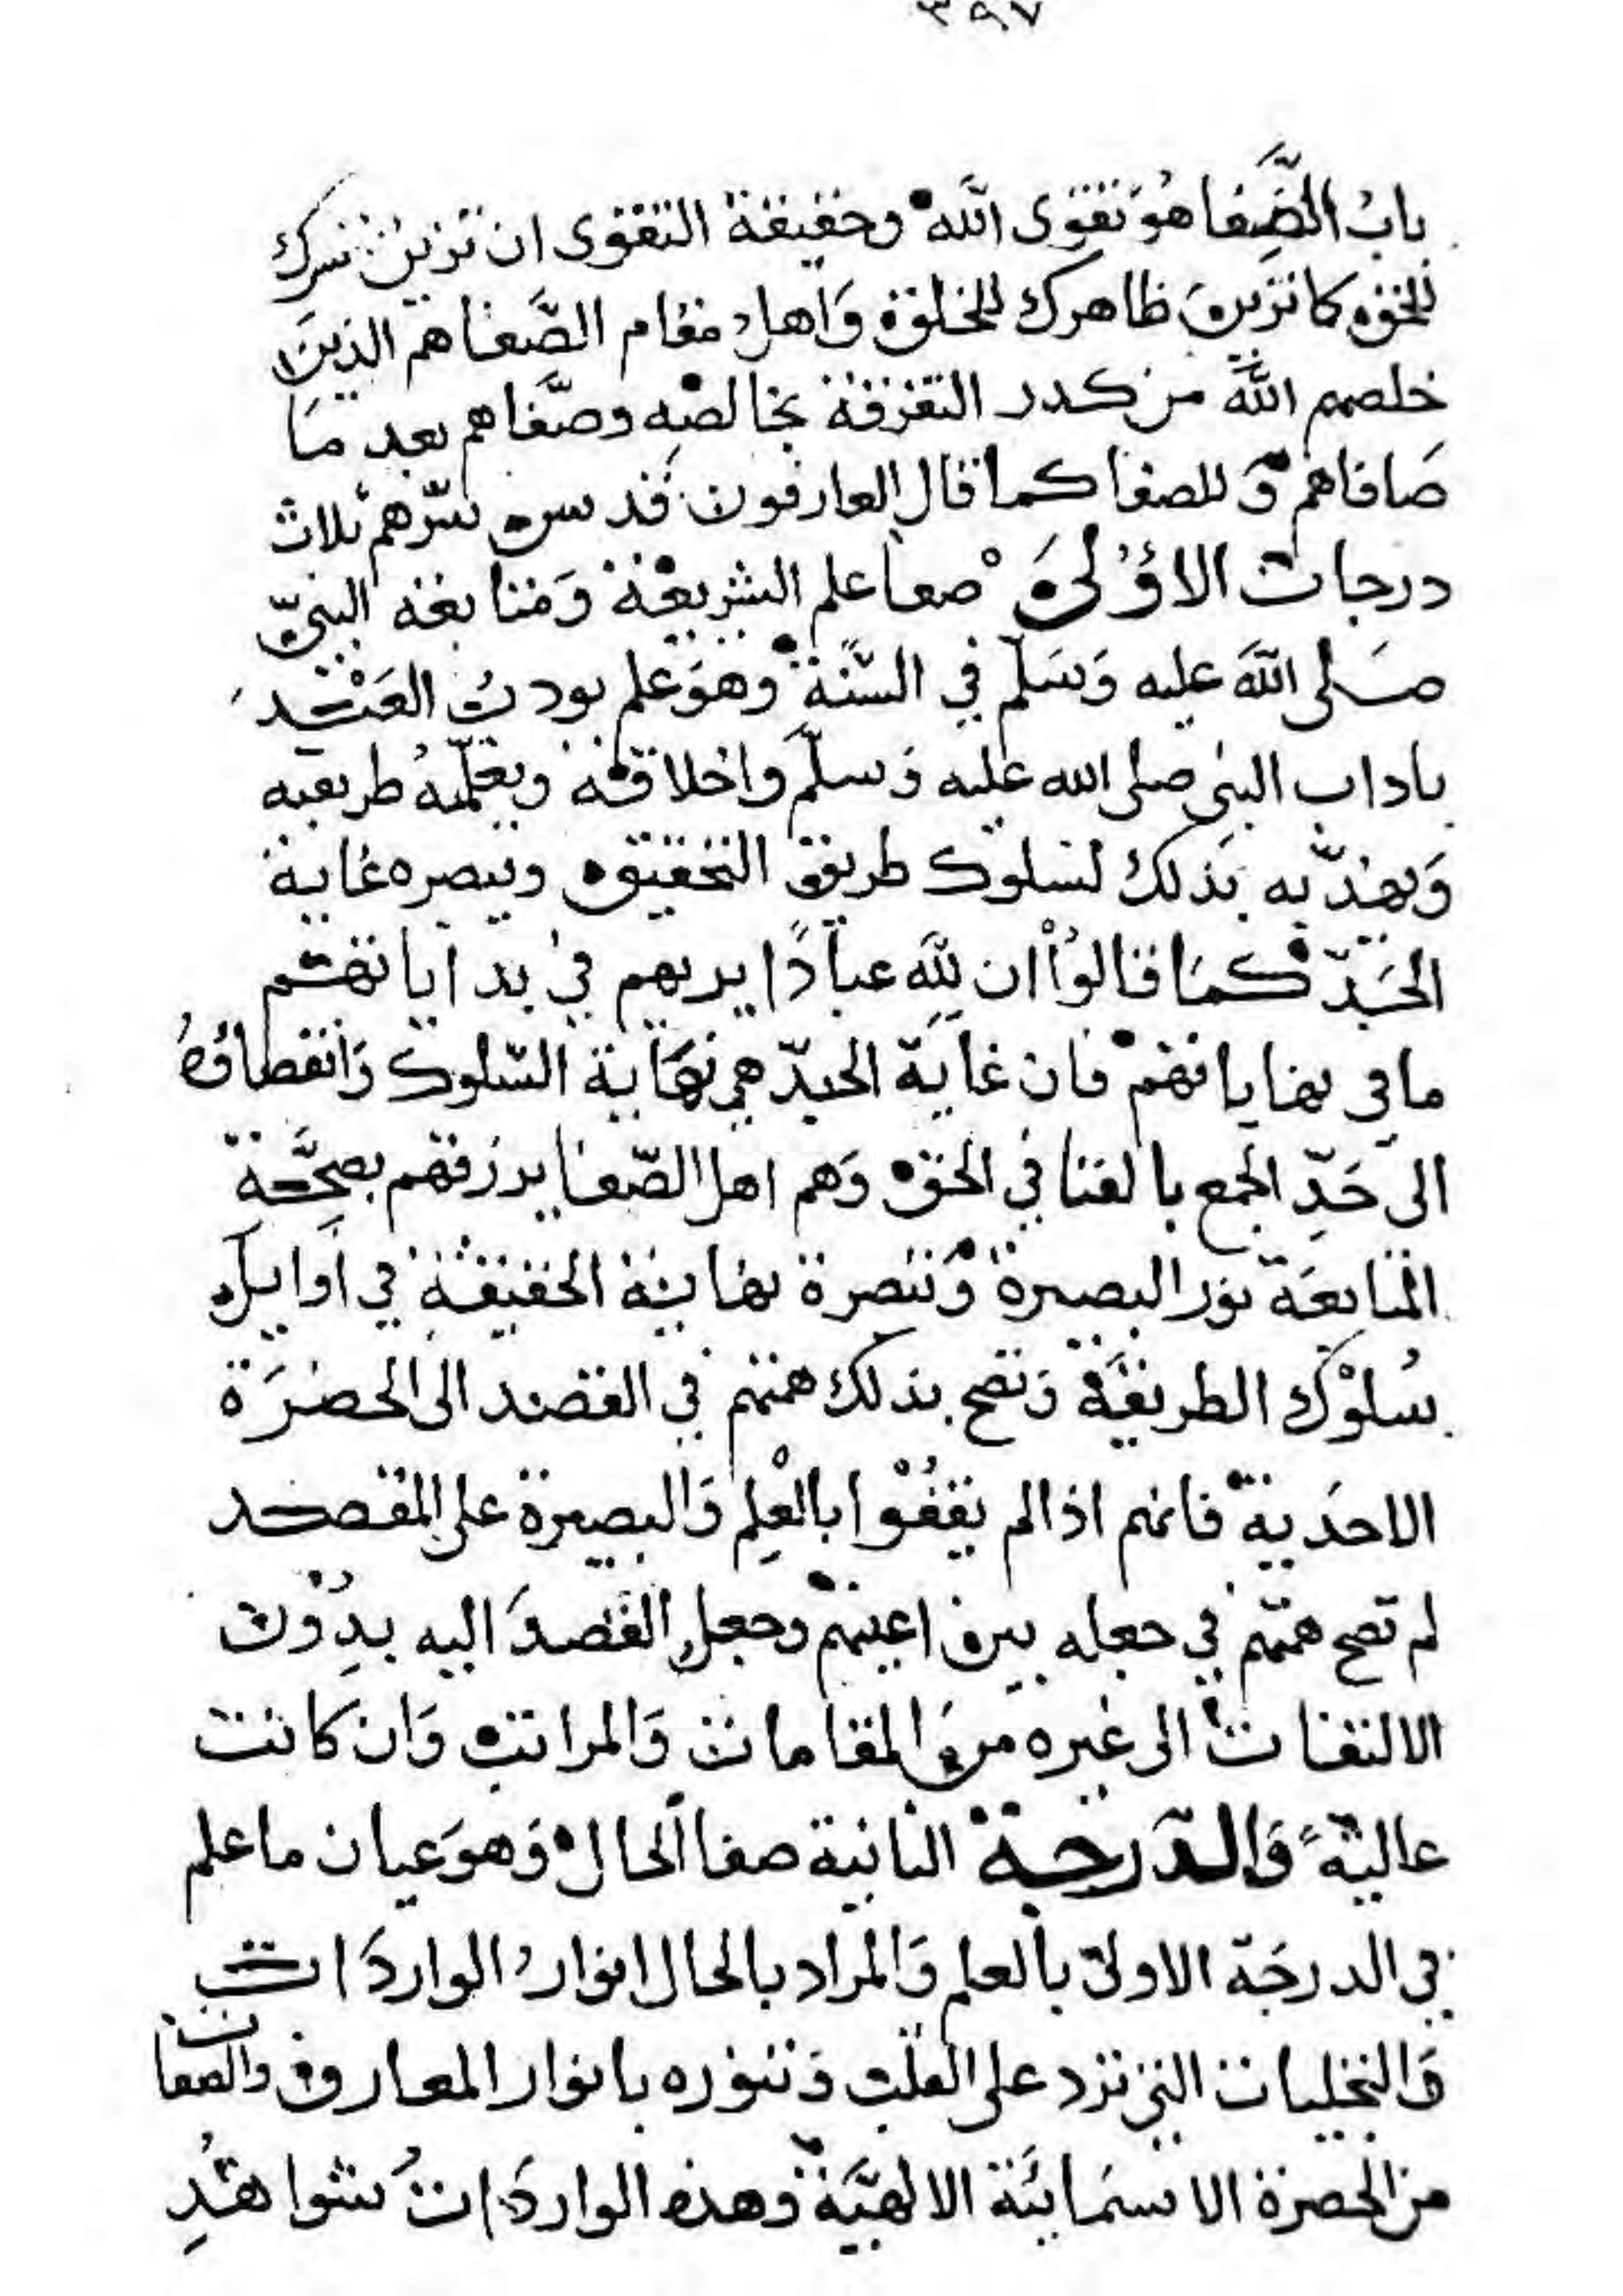 ٣٩٧
باب الصَّفا هو تقوى الله وحقيقة التقوى ان تزين سرك
للحق كما تزين ظاهرك للخلق وَاهل مقام الصَّفا هم الذينَ
خلصهم اللّه من كدر التفرقة بخالصه وصفّاهم بعد مَا
صَافاهم وَللصفا كما قال العارفون قدس سرّهم ثلاث
درجات الاُولىَ صفا علم الشريعة وَمتابعة النبيّ
صَلى اللّه عليه وَسَلّم في السّنّة وهوَ علم يودبُ العَبْد
باداب النبي صلى الله عليه وَسلّم واخلاقه ويعلّمهُ طريقه
وَيهذّبه بذلك لسلوك طريق التحقيق ويبصره غاية
الجَدّ كمَا قالوْا ان للّه عبادًا يريهم في بداياتهم
ما في نهاياتهم فان غايَة الجدّ هي نهَاية السّلوك وَانقطاعُهُ
الى حَدِّ الجمع بالفنا في الحق وَهم اهل الصّفا يرزقهم بصحَّة
المتابعَة نورَ البصيرة وَتبصرة نهاية الحقيقة في اَوايل
سُلوْك الطريقَة وَتصح بذلك همتهم في القصد الى الحضرَة
الاحَدية فانهم اذا لم يقفُوْا بالْعِلم وَالبصيرة على المقصد
لم تصح همّتهم في جعله بين اعينهم وجعل القصدَ اليه بدُوْن
الالتفات الى غيره من المقامات وَالمراتب وَان كانت
عاليةً وَالدَرجة الثانية صفا الحال وَهوَ عيان ما علم
في الدرجَة الاولى بالعلم وَالمراد بالحال انوارُ الواردَات
وَالتجليات التي ترد على القلب وَتنوره بانوار المعارف والصفات
من الحضرة الاسمَائيَّة الالهيَّة وَهذه الواردَاتُ شواهدُ